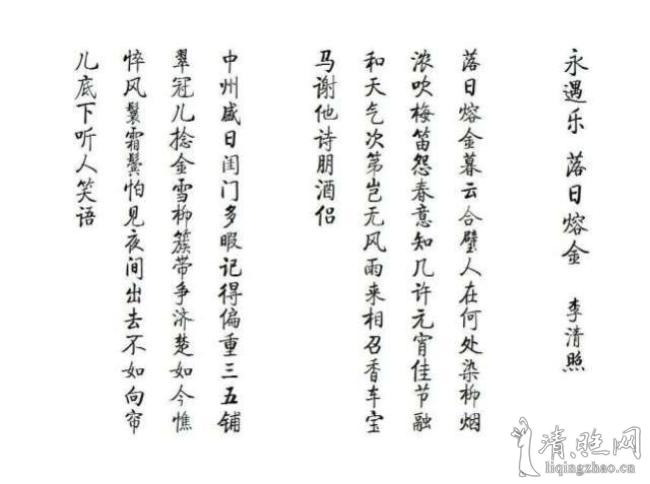 永遇乐 落日熔金 李清照
落日熔金暮云合璧人在何处染柳烟
浓吹梅笛怨春意知几许元宵佳节融
和天气次第岂无风雨来相召香车宝
马谢他诗朋酒侣
中州盛日闺门多暇记得偏重三五铺
翠冠儿捻金雪柳簇带争济楚如今憔
悴风鬟霜鬓怕见夜间出去不如向帘
儿底下听人笑语
清照网
liqingzhao.cn